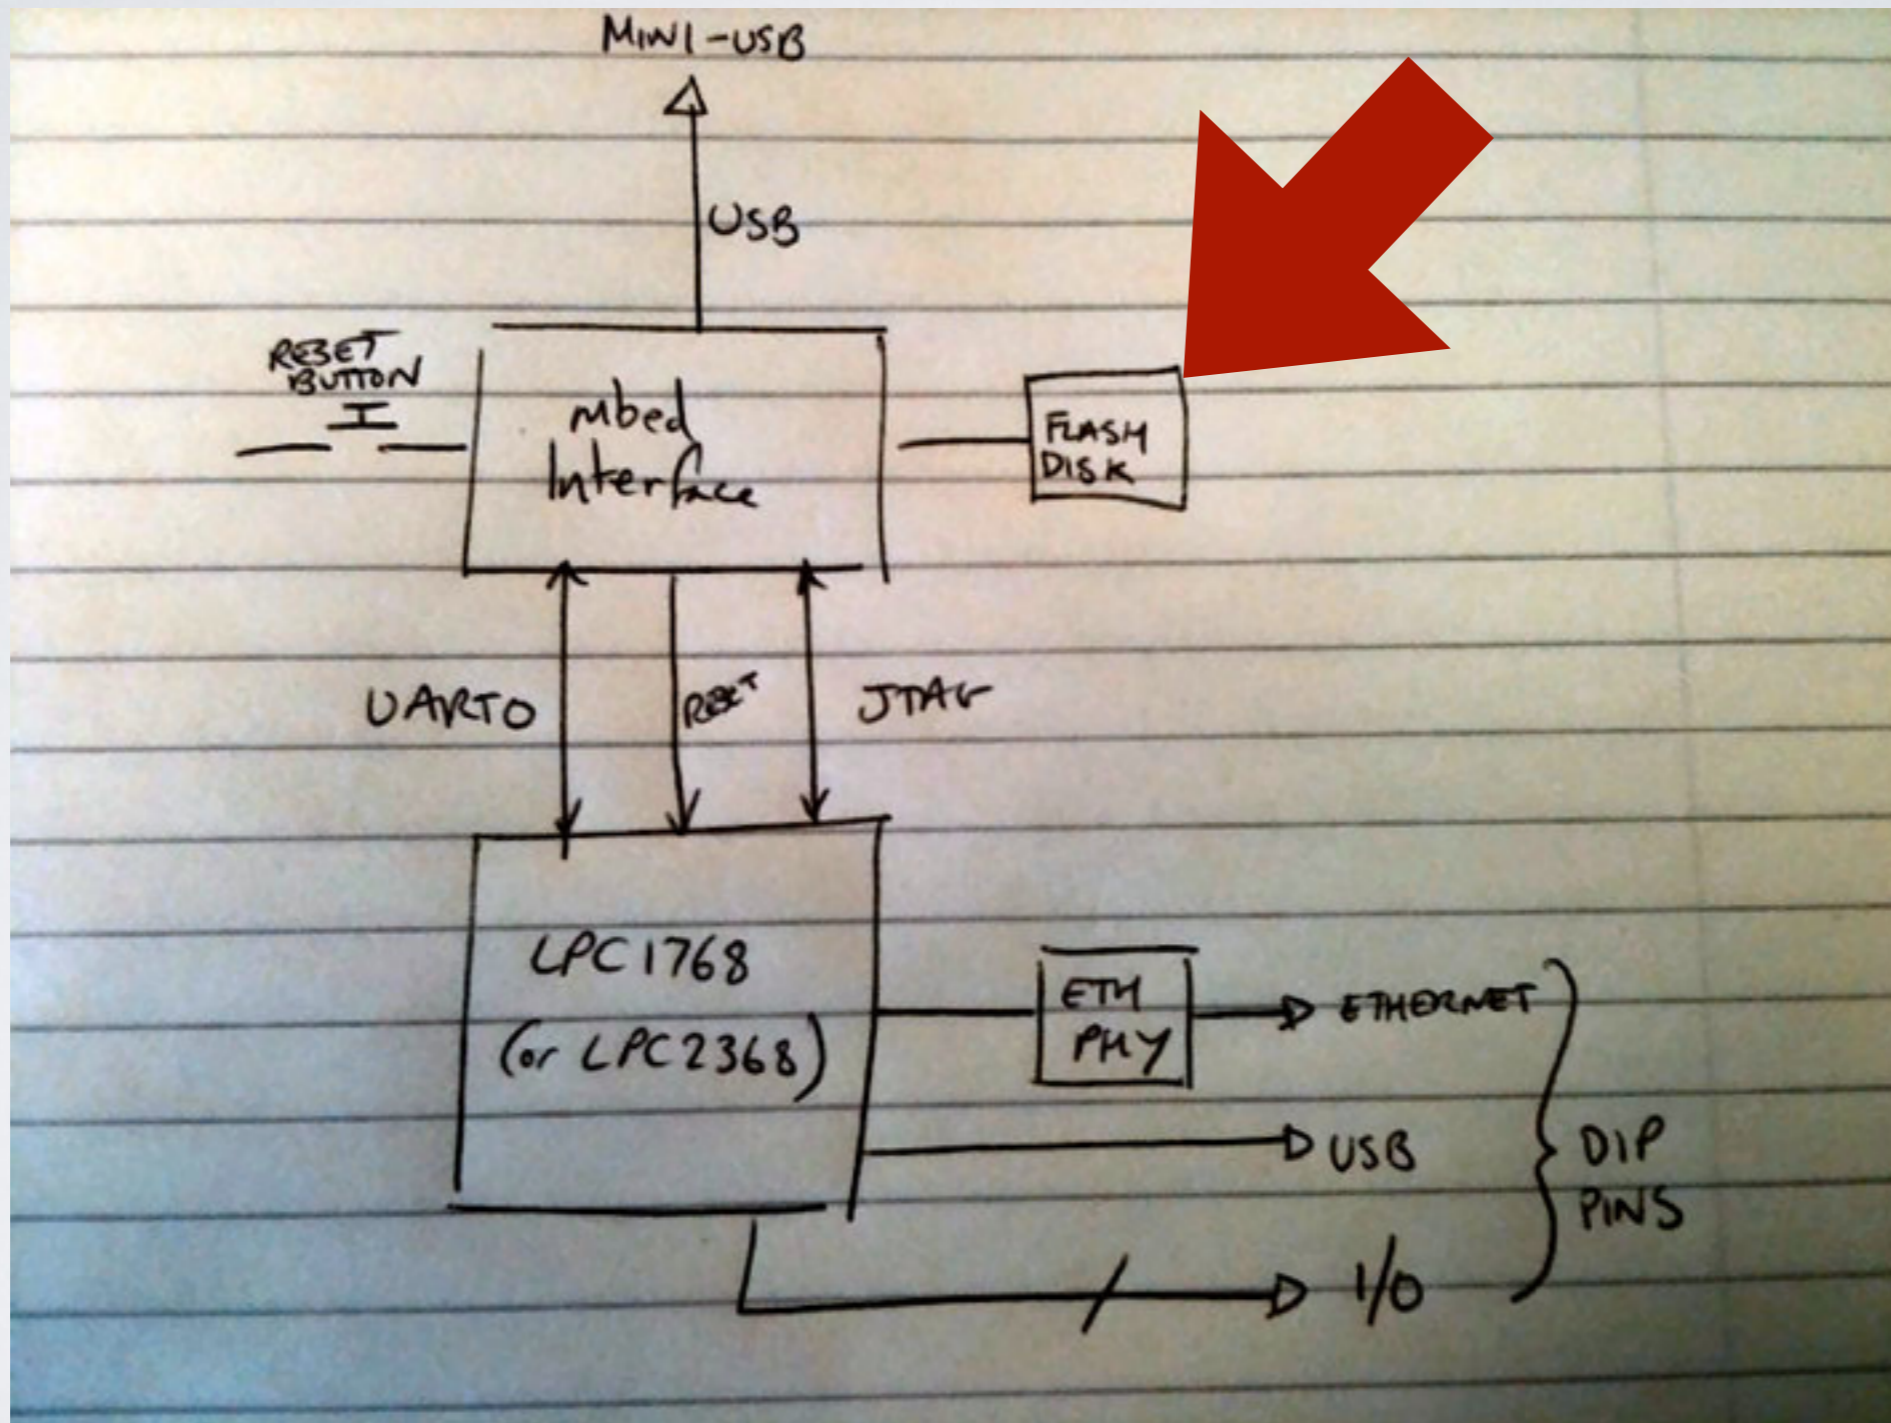 MINI-USB
USB
RESET
BUTTON
mbed
Interface
FLASH
DISK
UART0
RESET
JTAG
LPC1768
(or LPC2368)
ETH
PHY
ETHERNET
USB
I/O
DIP
PINS